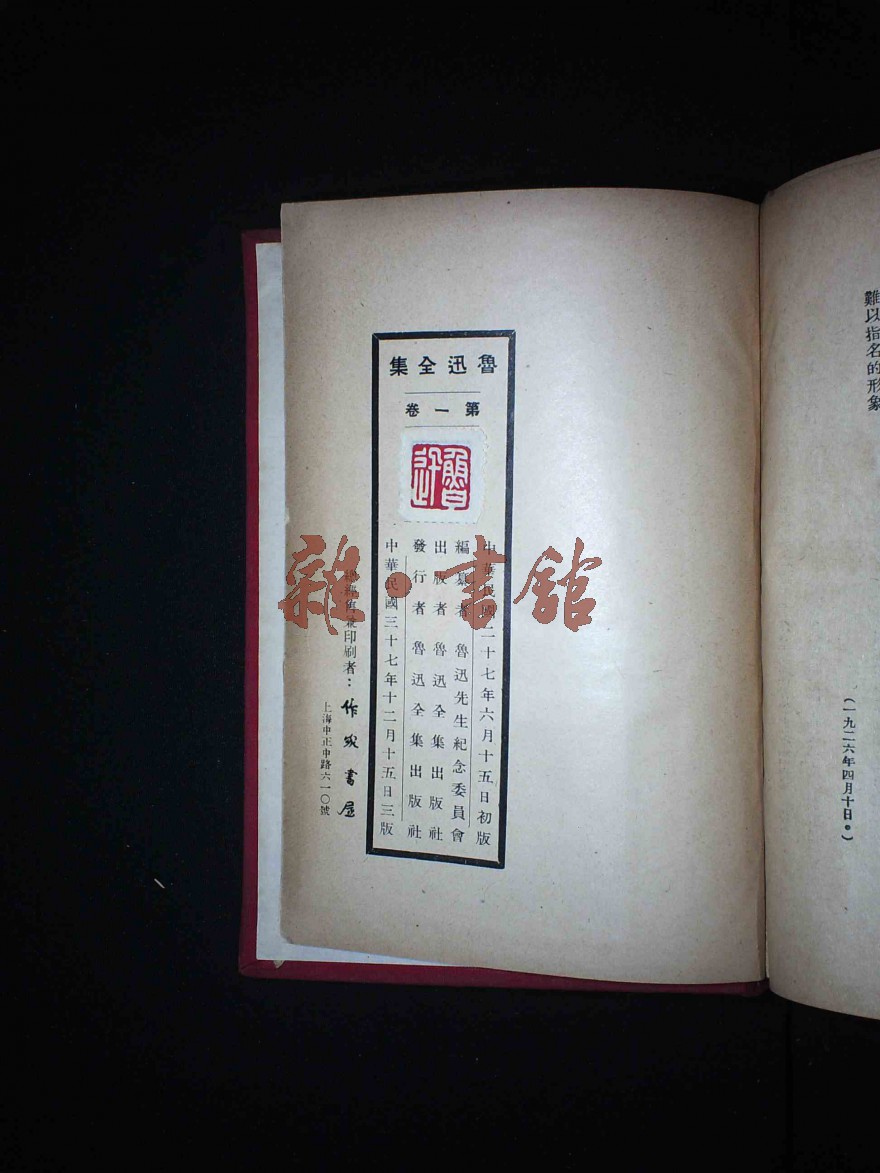 難以指名的形象
(一九二六年四月十日。)
魯迅全集
第一卷
魯迅
中華民國二十七年六月十五日初版
編纂者 魯迅先生紀念委員會
出版者 魯迅全集出版社
發行者 魯迅全集出版社
中華民國三十七年十二月十五日三版
印刷者：作家書屋
上海中正中路六一〇號
雜·書館